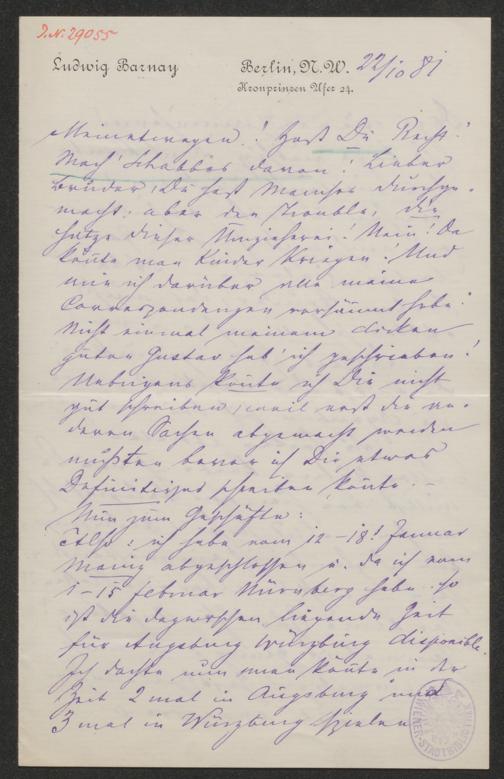 J.N. 29055
Ludwig Barnay
Berlin, N.W. 22/10 81
Kronprinzen Ufer 24.
Meinetwegen! Hast Du Recht!
Mach' Schabbes davon! Lieber
Bruder, Du hast Manches durchge-
macht; aber den Trouble, die
Hatze dieser Umzieherei! Nein! Da
könnte man Kinder kriegen! Und
wie ich darüber alle meine
Correspondenzen versäumt habe!
Nicht einmal meinem dicken
guten Gustav hab' ich geschrieben!
Uebrigens konnte ich Dir nicht
gut schreiben, weil erst die an-
deren Sachen abgemacht werden
mußten bevor ich Dir etwas
Definitives schreiben konnte. –
Nun zum Geschäfte:
Also: ich habe vom 12-18! Januar
Mainz abgeschlossen u. da ich vom
1-15 Februar Nürnberg habe. so
ist die dazwischen liegende Zeit
für Augsburg Würzburg disponible.
Ich dachte nun man könnte in der
Zeit 2 mal in Augsburg und
3 mal in Würzburg spielen